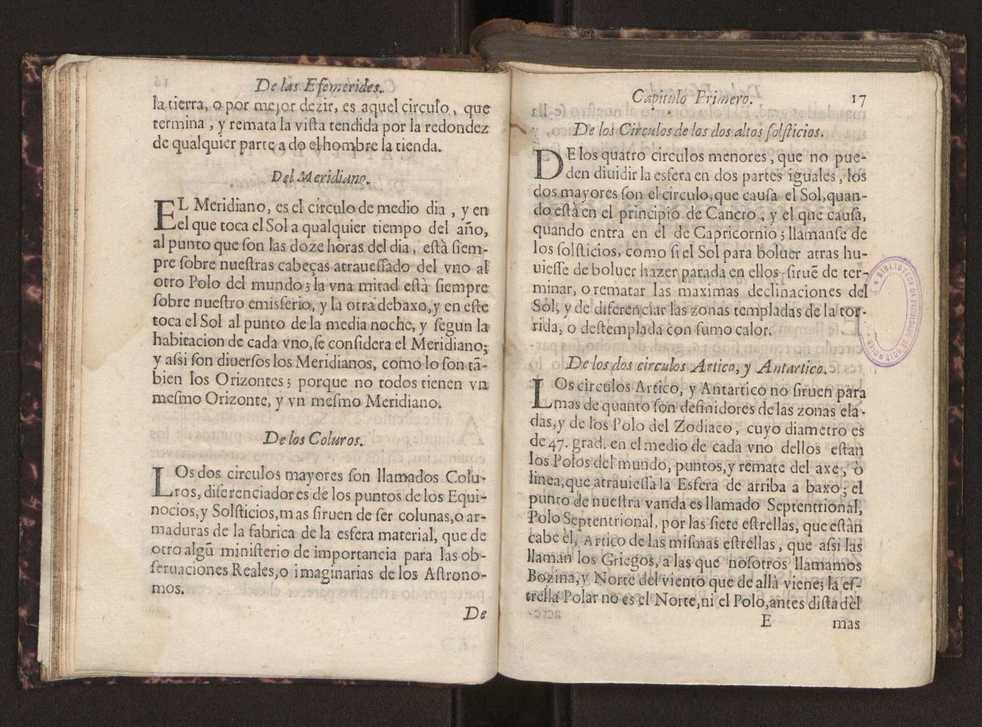 De las Efemerides.
la tierra, o por mejor dezir, es aquel circulo, que
termina, y remata la vista tendida por la redondez
de qualquier parte a do el hombre la tienda.
Del Meridiano.
EL Meridiano, es el circulo de medio dia, y en
el que toca el Sol a qualquier tiempo del año,
al punto que son las doze horas del dia, està siem-
pre sobre nuestras cabeças atrauessado del vno al
otro Polo del mundo; la vna mitad està siempre
sobre nuestro emisferio, y la otra debaxo, y en este
toca el Sol al punto de la media noche, y segun la
habitacion de cada vno, se considera el Meridiano;
y assi son diuersos los Meridianos, como lo son tã-
bien los Orizontes; porque no todos tienen vn
mesmo Orizonte, y vn mesmo Meridiano.
De los Coluros.
LOs dos circulos mayores son llamados Colu-
ros, diferenciadores de los puntos de los Equi-
nocios, y Solsticios, mas siruen de ser colunas, o ar-
maduras de la fabrica de la esfera material, que de
otro algũ ministerio de importancia para las ob-
seruaciones Reales, o imaginarias de los Astrono-
mos.
De
Capitulo Primero. 17
De los Circulos de los dos altos solsticios.
DE los quatro circulos menores, que no pue-
den diuidir la esfera en dos partes iguales, los
dos mayores son el circulo, que causa el Sol, quan-
do està en el principio de Cancro, y el que causa,
quando entra en el de Capricornio; llamanse de
los solsticios, como si el Sol para boluer atras hu-
uiesse de boluer hazer parada en ellos; siruẽ de ter-
minar, o rematar las maximas declinaciones del
Sol, y de diferenciar las zonas templadas de la tor-
rida, o destemplada con sumo calor.
De los dos circulos Artico, y Antartico.
LOs circulos Artico, y Antartico no siruen para
mas de quanto son definidores de las zonas ela-
das, y de los Polo del Zodiaco, cuyo diametro es
de 47. grad. en el medio de cada vno dellos estan
los Polos del mundo, puntos, y remate del axe, o
linea, que atrauiessa la Esfera de arriba a baxo; el
punto de nuestra vanda es llamado Septentrional,
Polo Septentrional, por las siete estrellas, que estàn
cabe èl, Artico de las mismas estrellas, que assi las
llaman los Griegos, a las que nosotros llamamos
Bozina, y Norte del viento que de allà viene; la es-
trella Polar no es el Norte, ni el Polo, antes dista dèl
E mas